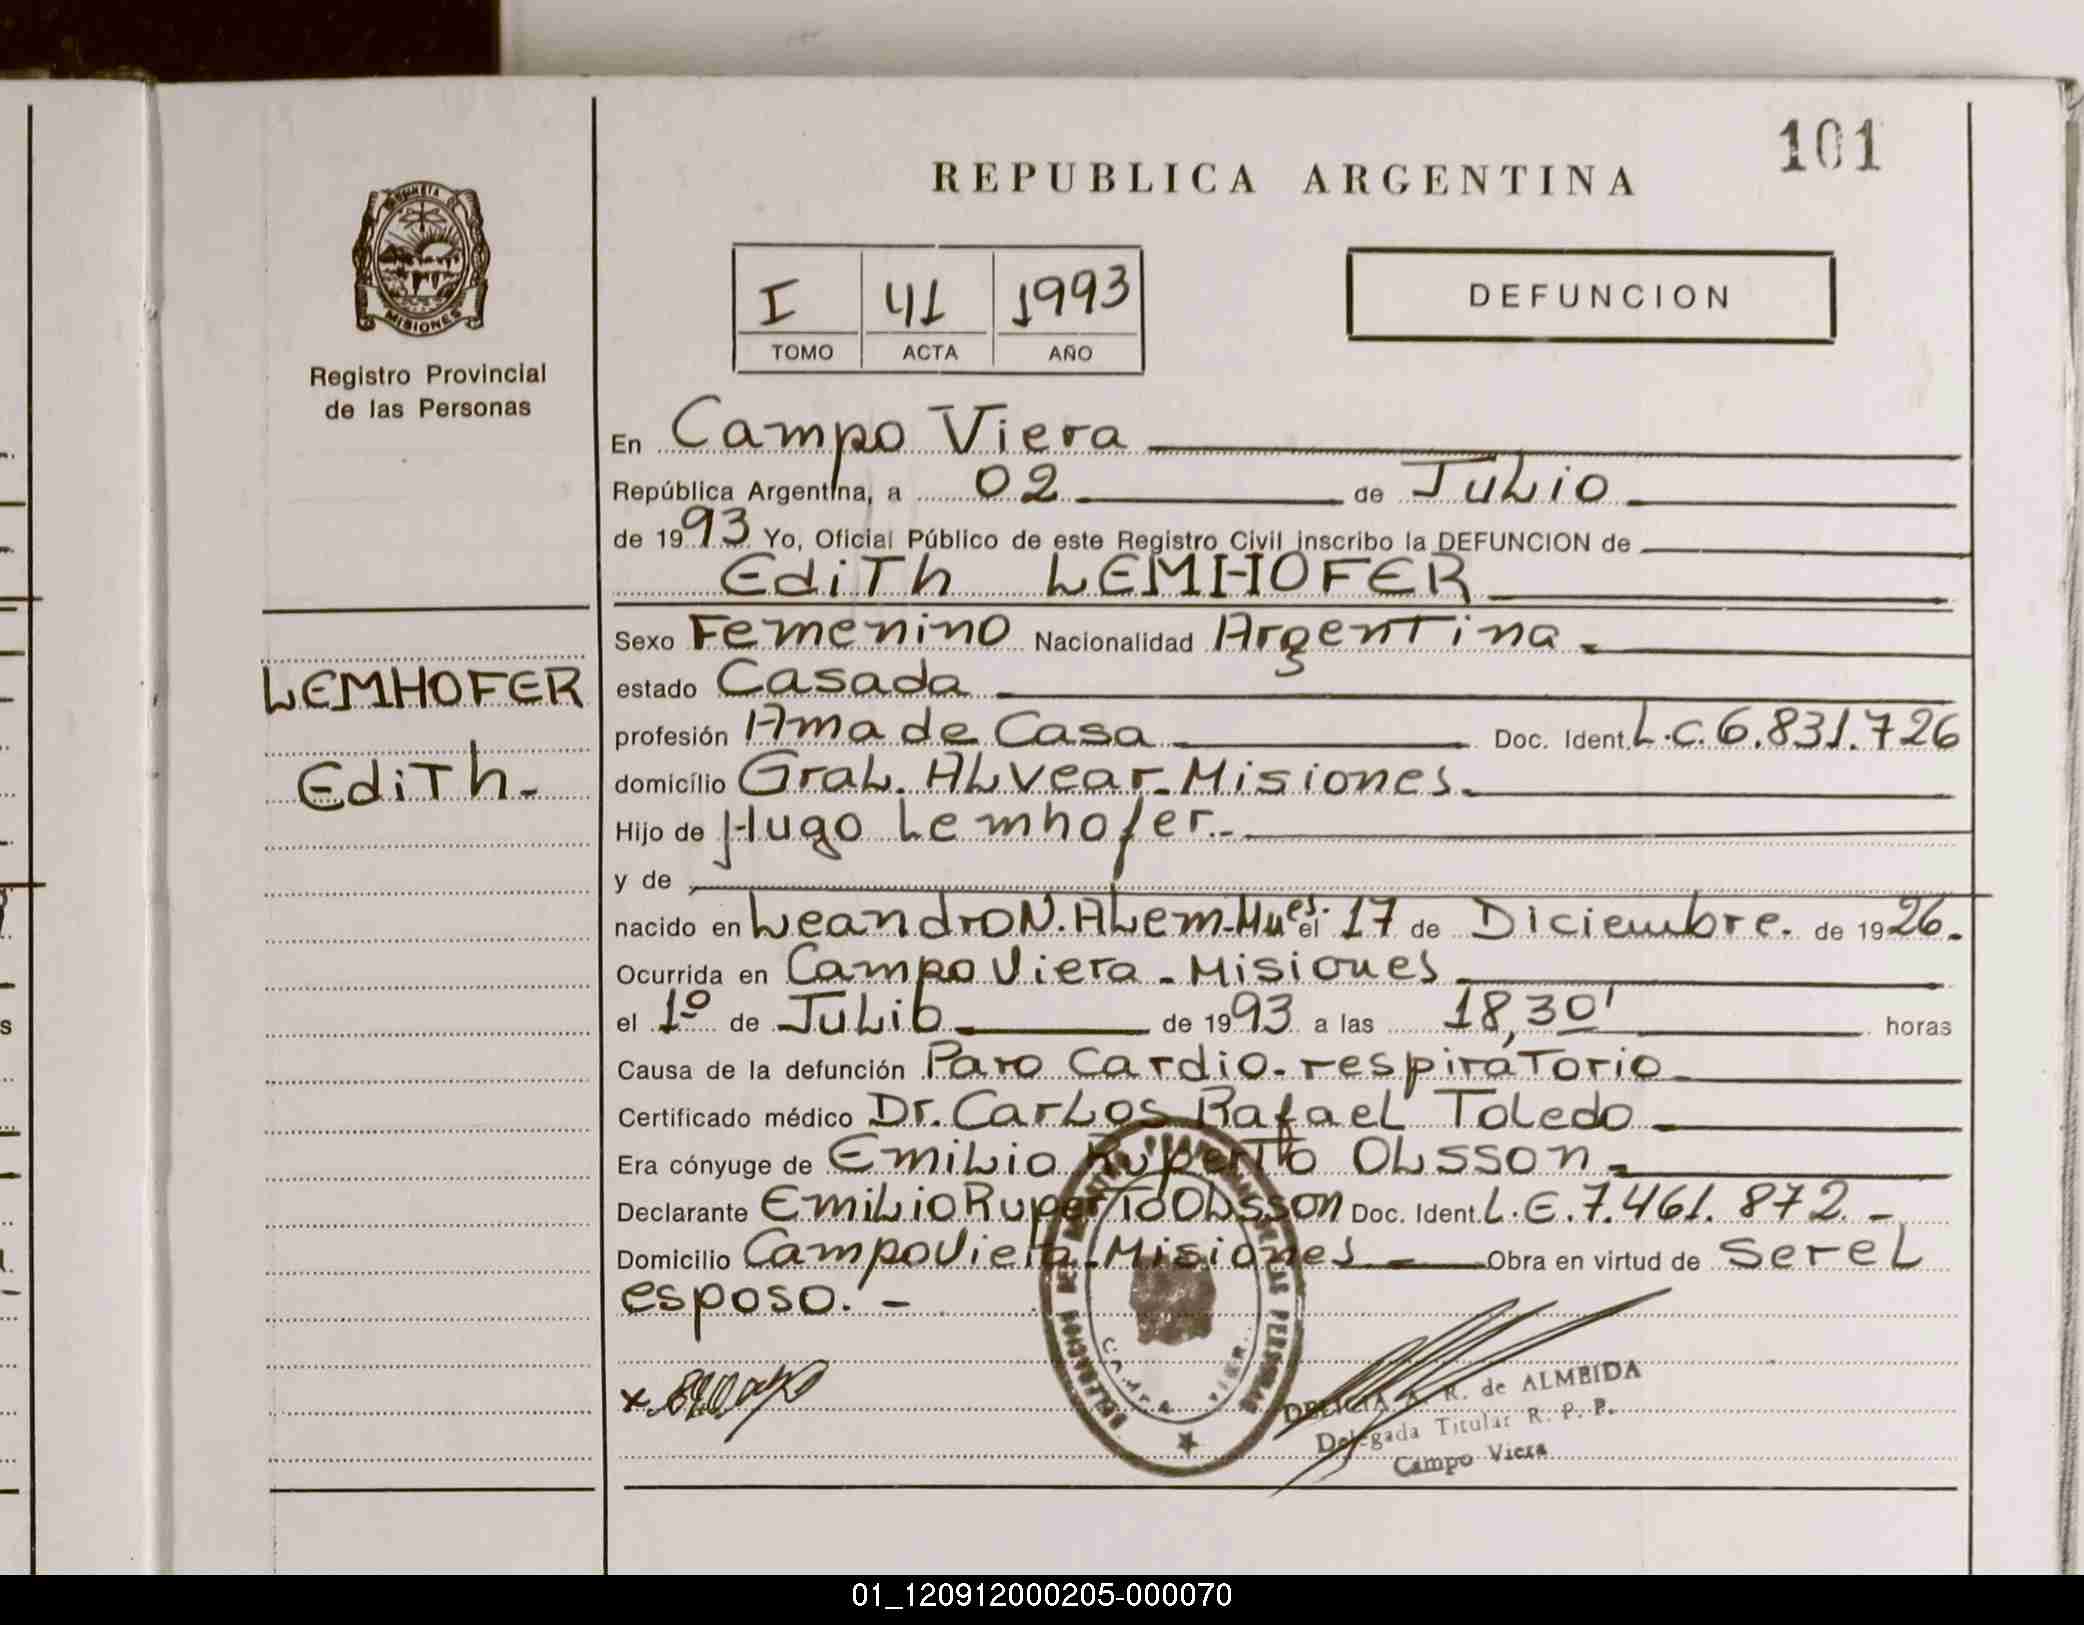 101
REPUBLICA ARGENTINA
MISIONES
Registro Provincial
de las Personas
I 41 1993
TOMO ACTA AÑO
DEFUNCION
En Campo Viera
República Argentina, a 02 de Julio
de 1993 Yo, Oficial Público de este Registro Civil inscribo la DEFUNCION de
Edith LEMHOFER
Sexo Femenino Nacionalidad Argentina
estado Casada
profesión Ama de Casa Doc. Ident. L.C. 6.831.726
domicílio Gral. Alvear - Misiones
Hijo de Hugo Lemhofer.-
y de
nacido en Leandro N. Alem - Mnes. el 17 de Diciembre. de 1926.-
Ocurrida en Campo Viera - Misiones
el 1º de Julio de 1993 a las 18,30' horas
Causa de la defunción Paro Cardio-respiratorio
Certificado médico Dr. Carlos Rafael Toledo
Era cónyuge de Emilio Ruperto Olsson.-
Declarante Emilio Ruperto Olsson Doc. Ident. L.E. 7.461.872.-
Domicilio Campo Viera - Misiones Obra en virtud de Ser el
esposo.-
LEMHOFER
Edith.-
DELICIA A. R. de ALMEIDA
Delegada Titular R. P. P.
Campo Viera
01_120912000205-000070